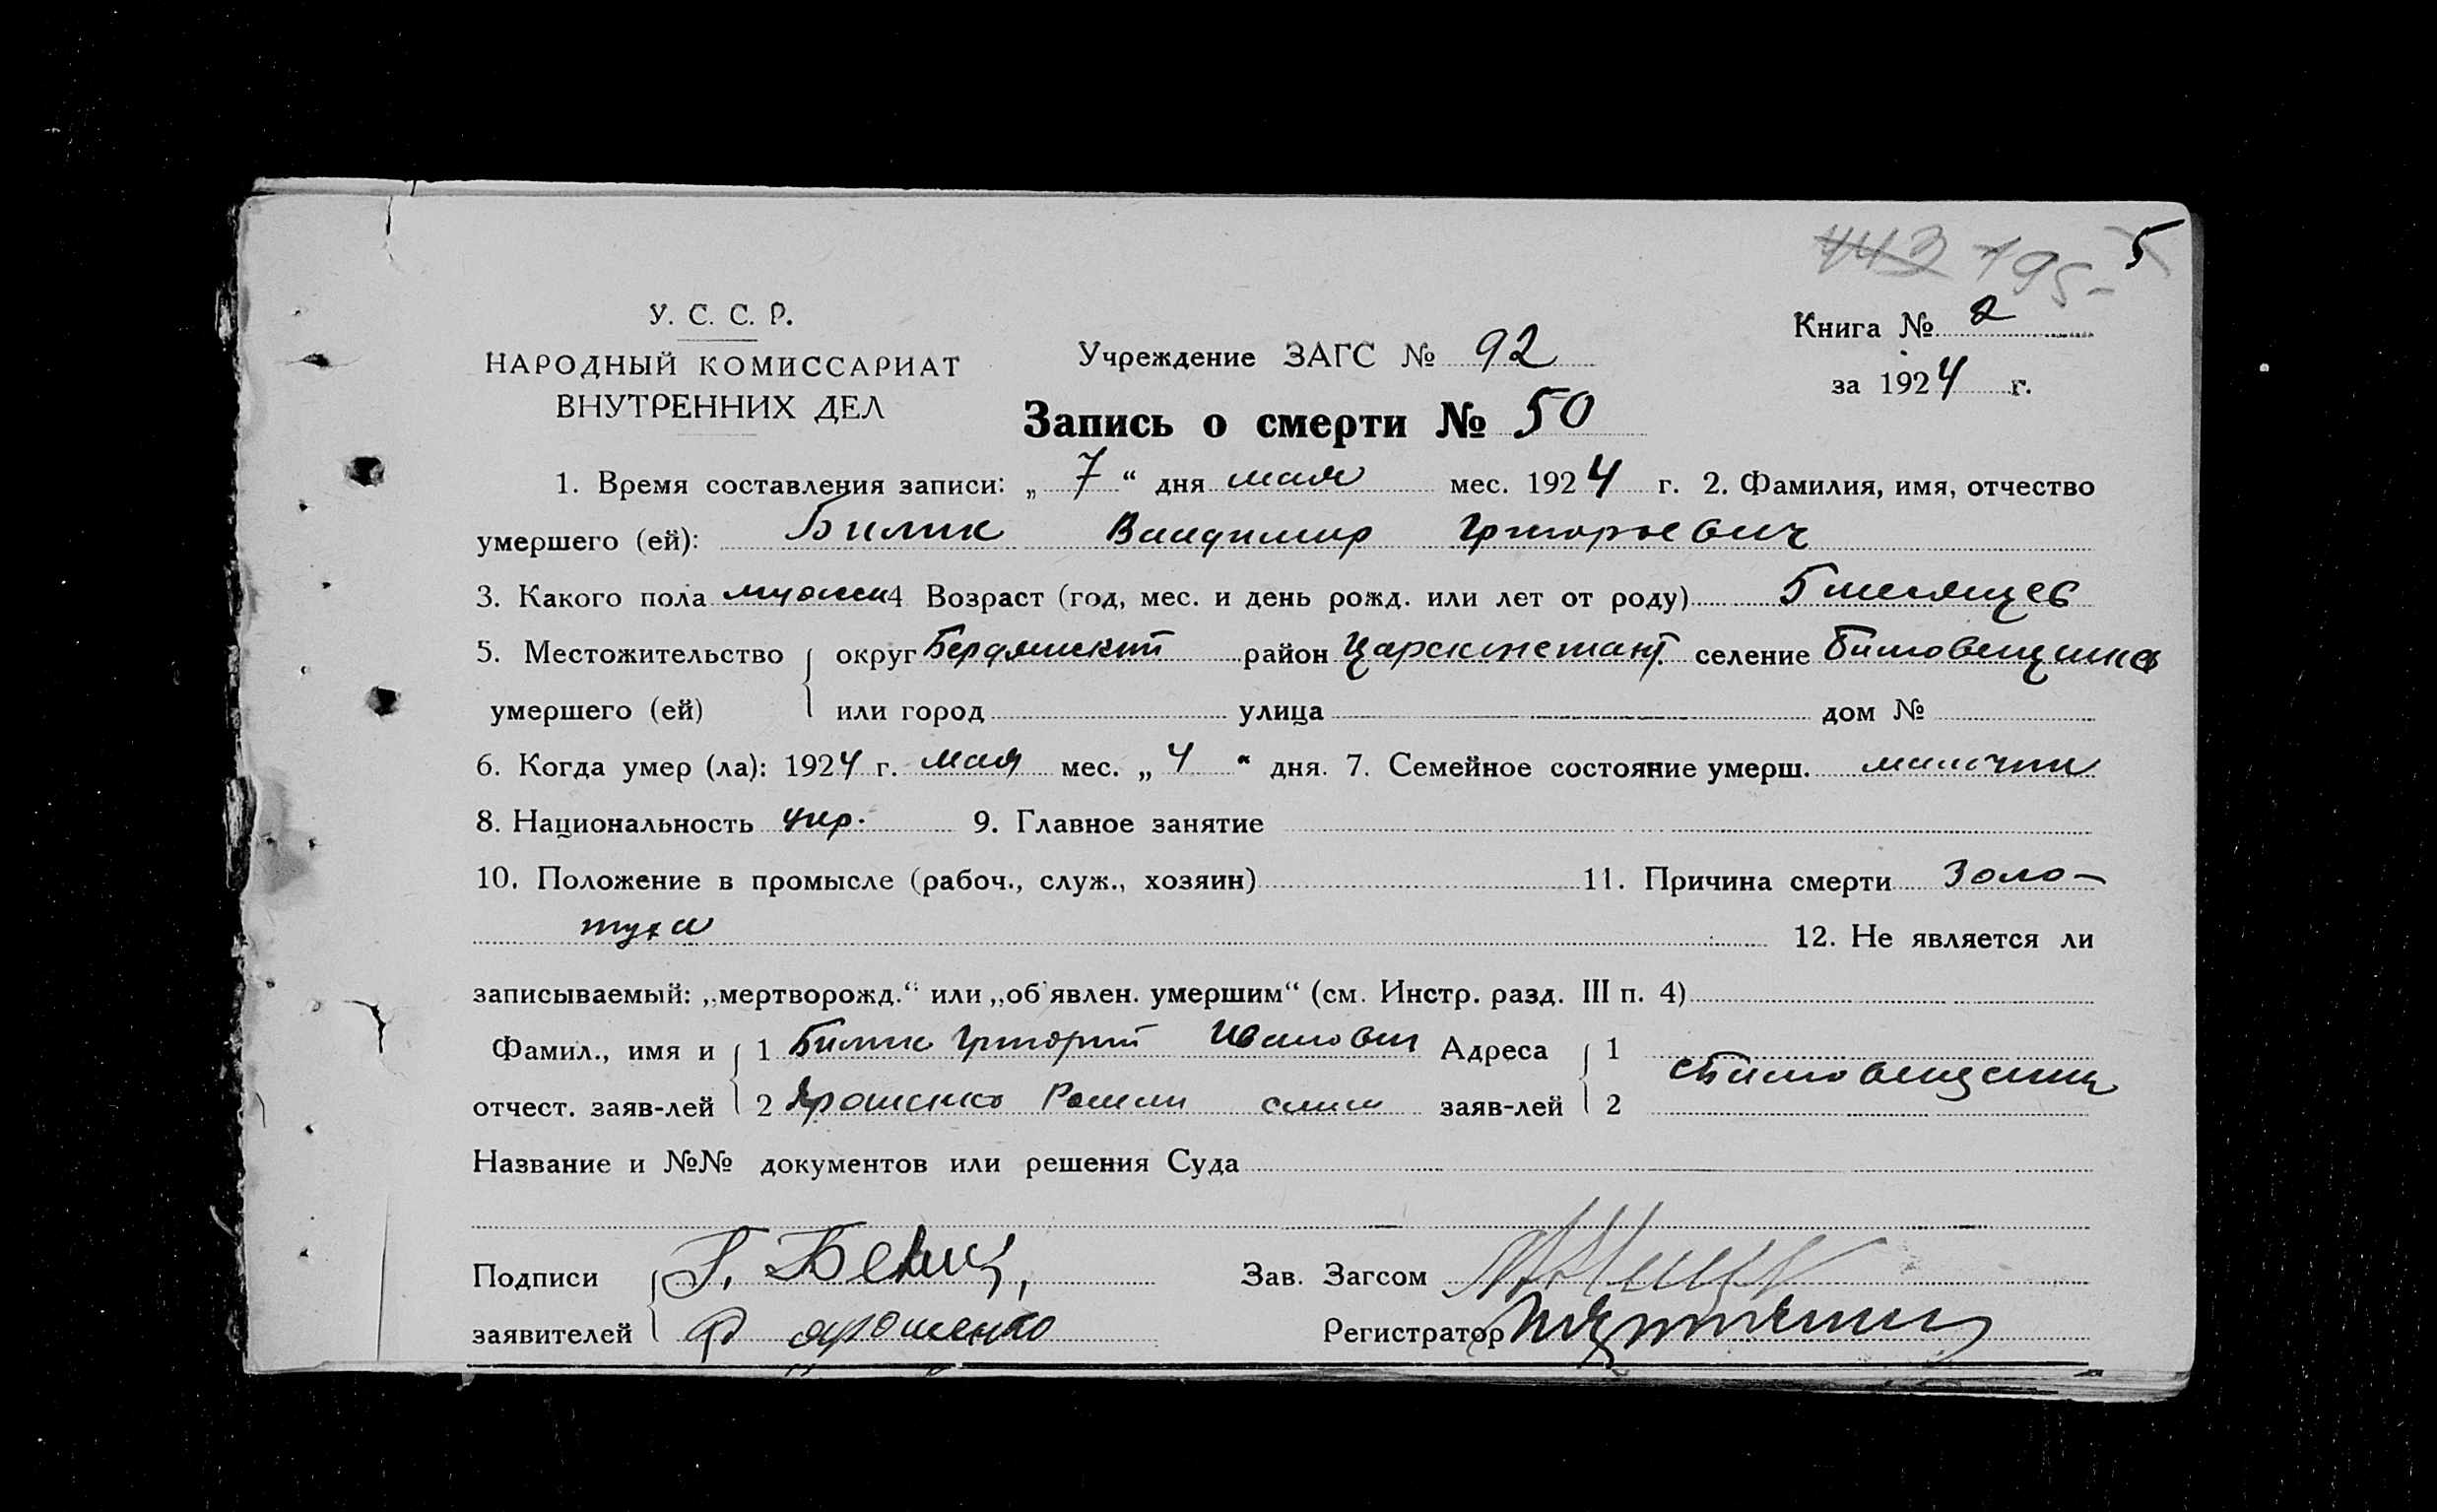 443 195- 5
У. С. С. Р.
НАРОДНЫЙ КОМИССАРИАТ
ВНУТРЕННИХ ДЕЛ
Учреждение ЗАГС № 92
Книга № 2
за 1924 г.
Запись о смерти № 50
1. Время составления записи: „ 7 “ дня мая мес. 1924 г. 2. Фамилия, имя, отчество
умершего (ей): Билик Владимир Григорьевич
3. Какого пола мужск 4 Возраст (год, мес. и день рожд. или лет от роду) 5 месяцев
5. Местожительство округ Бердянский район Царсконстант. селение
умершего (ей) или город улица дом №
6. Когда умер (ла): 1924 г. мая мес. „ 4 “ дня. 7. Семейное состояние умерш.
8. Национальность укр. 9. Главное занятие
10. Положение в промысле (рабоч., служ., хозяин) 11. Причина смерти Золо-
туха
12. Не является ли
записываемый: „мертворожд.“ или „об'явлен. умершим“ (см. Инстр. разд. III п. 4)
Фамил., имя и 1 Билик Григорий Иванович Адреса 1
отчест. заяв-лей 2 Ярошенко Роман заяв-лей 2
Название и №№ документов или решения Суда
Подписи Г. Белик, Зав. Загсом
заявителей Ярошенко Регистратор